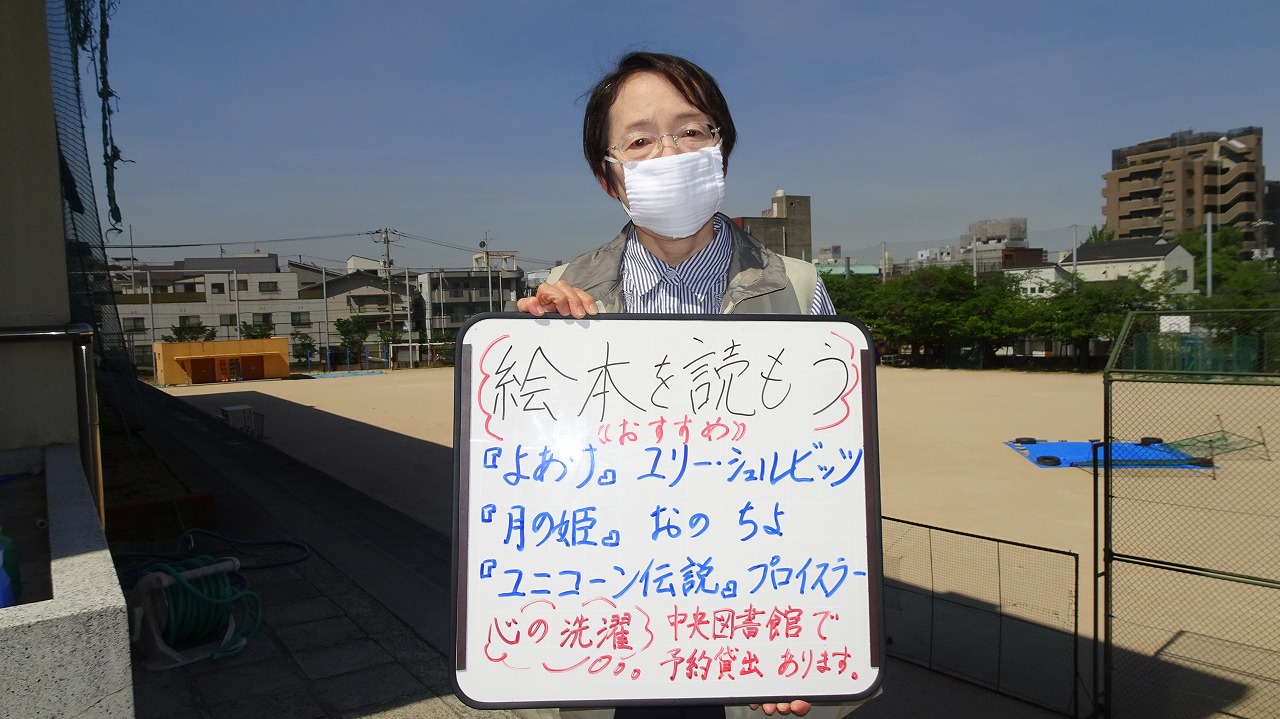 絵本を読もう
《おすすめ》
『よあけ』 ユリー・シュルビッツ
『月の姫』 おの ちよ
『ユニコーン伝説』 プロイスラー
心の洗濯 中央図書館で
予約貸出 あります。